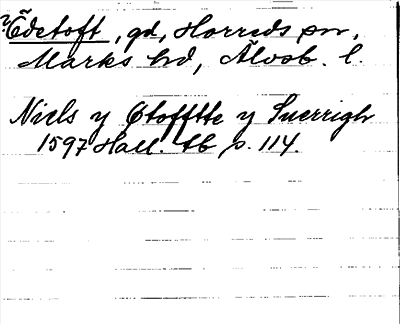 ? Ödetoft, gd, Horreds sn,
Marks hd, Älvsb. l.
Niels y Otofftte y Suerrigh
1597 Hall. tb p. 114.